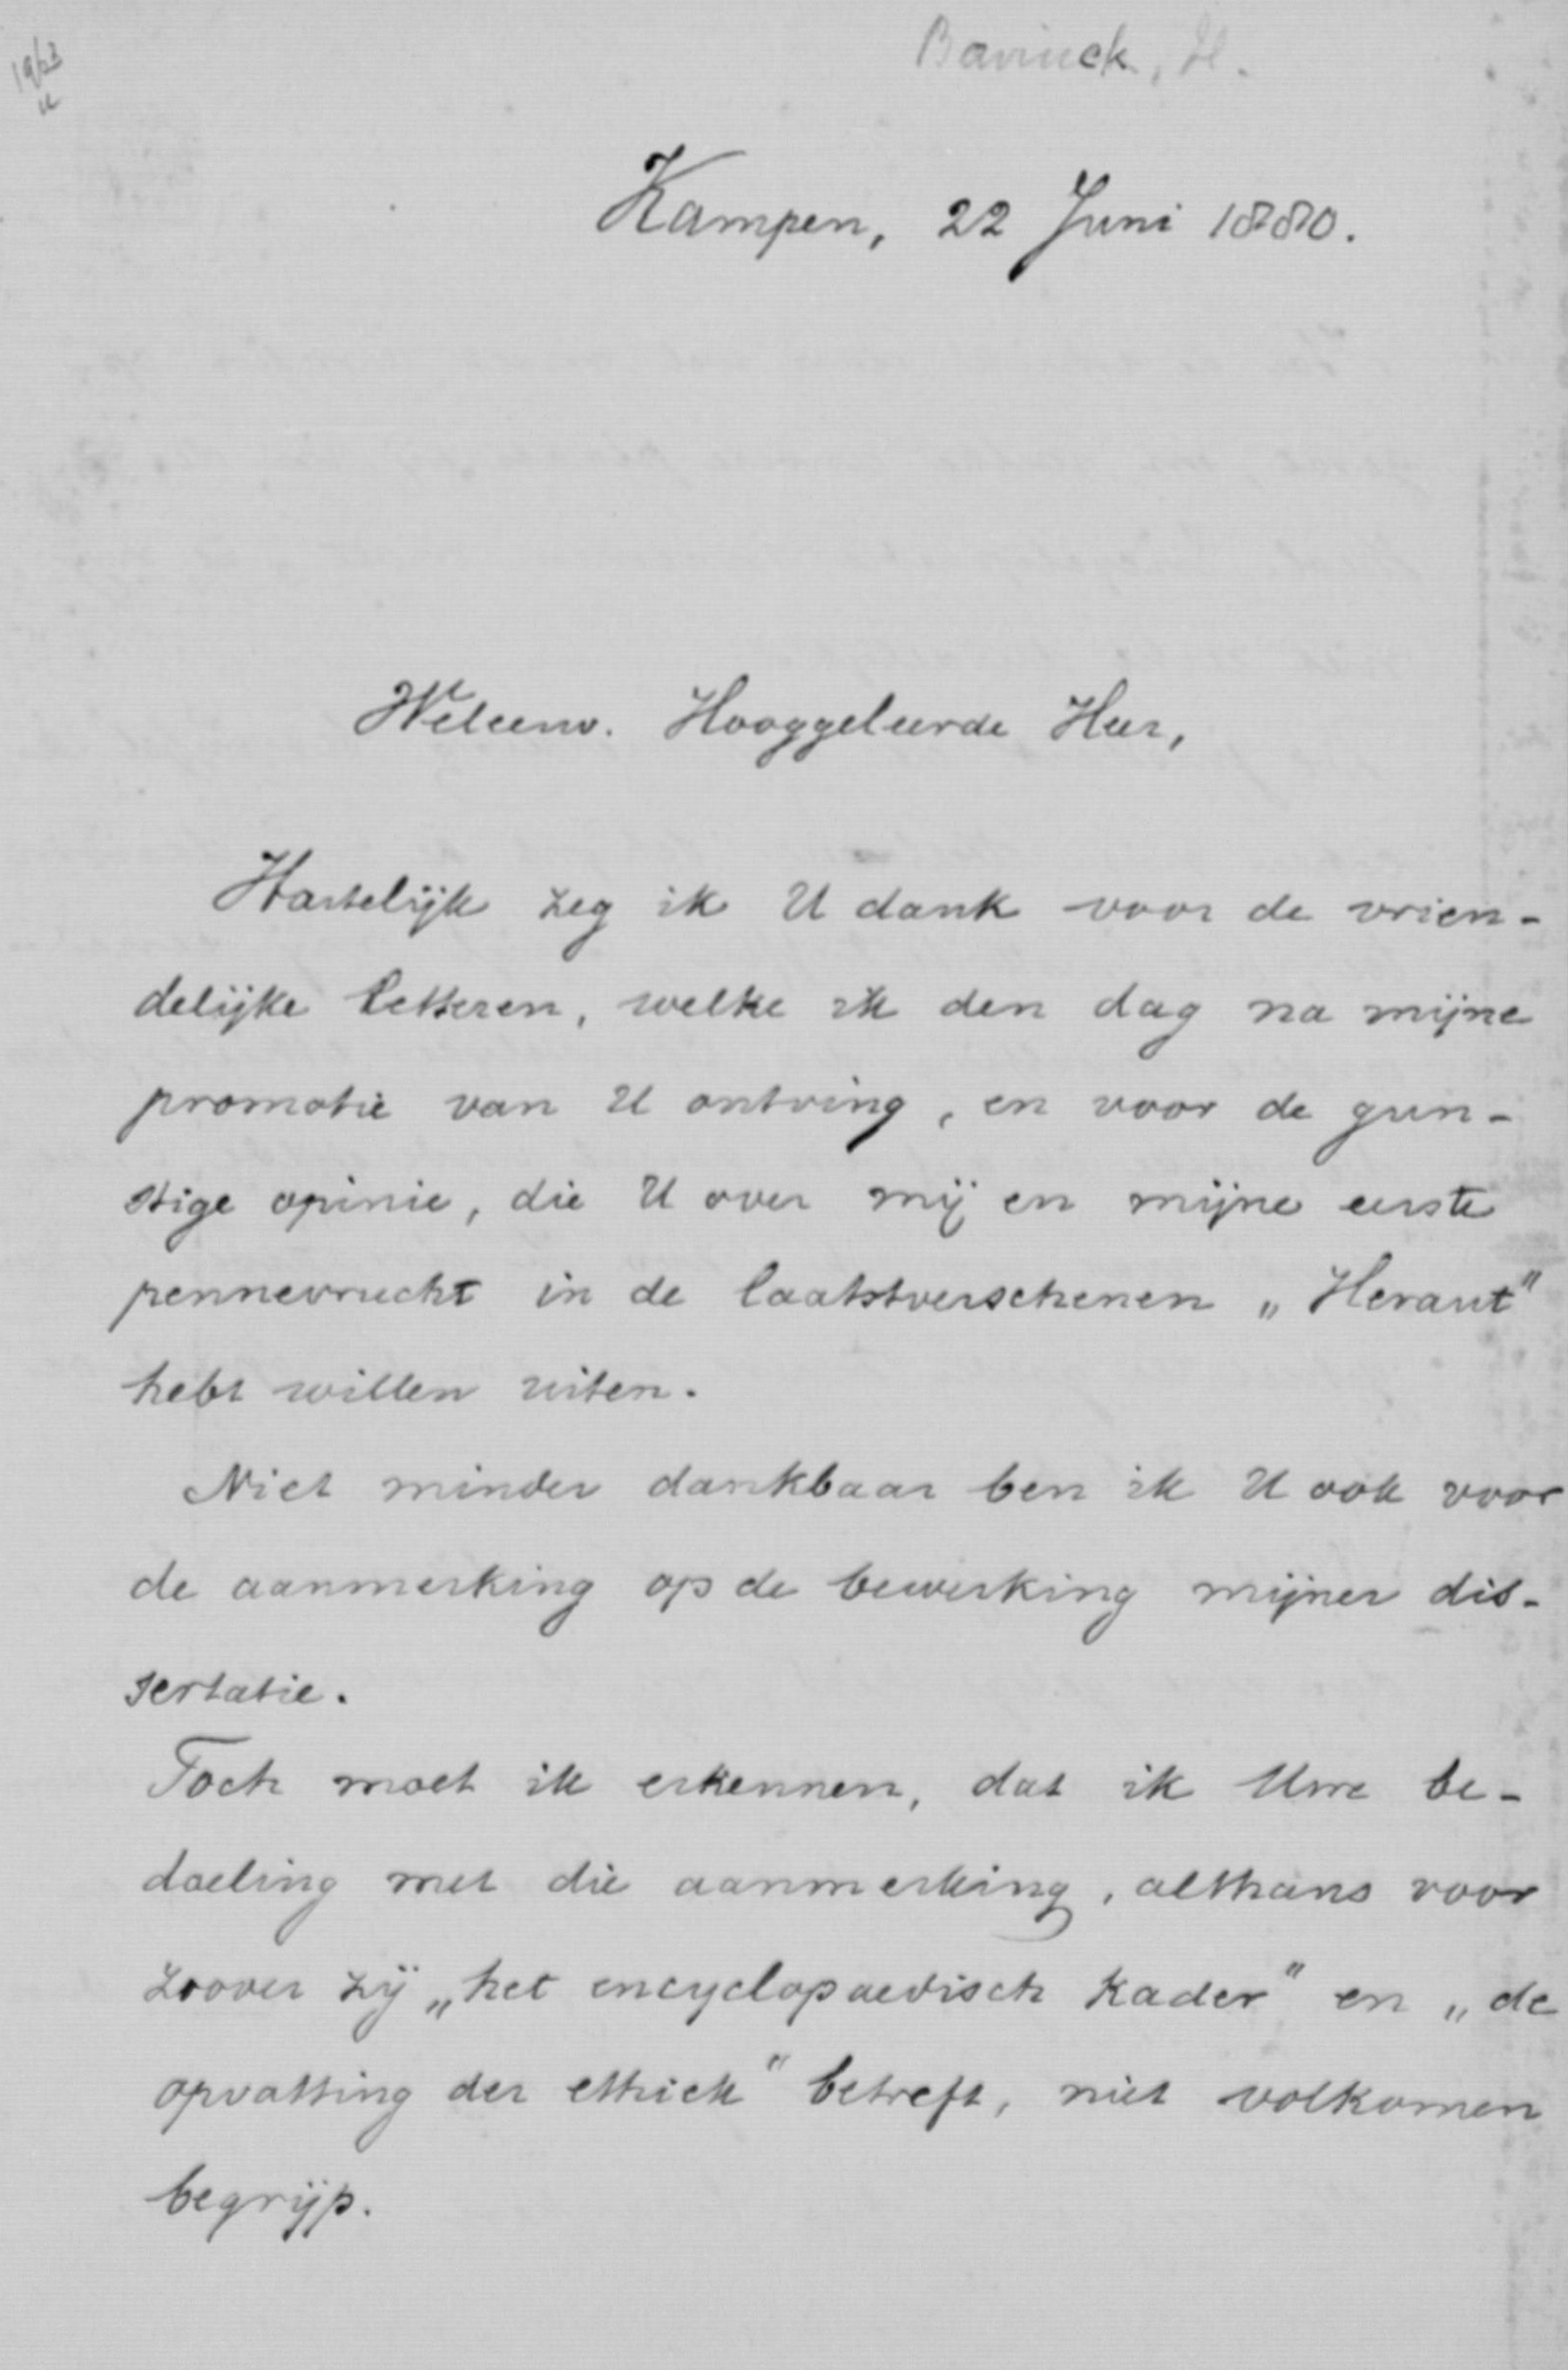 Bavinck, H.
Kampen, 22 Juni 1880.
Weleerw. Hooggeleerde Heer,
Hartelijk zeg ik U dank voor de vrien-
delijke letteren, welke ik den dag na mijne
promotie van U ontving, en voor de gun-
stige opinie, die U over mij en mijne eerste
pennevrucht in de laatstverschenen „Heraut"
hebt willen uiten.
Niet minder dankbaar ben ik U ook voor
de aanmerking op de bewerking mijner dis-
sertatie.
Toch moet ik erkennen, dat ik Uwe be-
doeling met die aanmerking, althans voor
zoover zij „het encyclopaedisch kader" en „de
opvatting der ethiek" betreft, niet volkomen
begrijp.